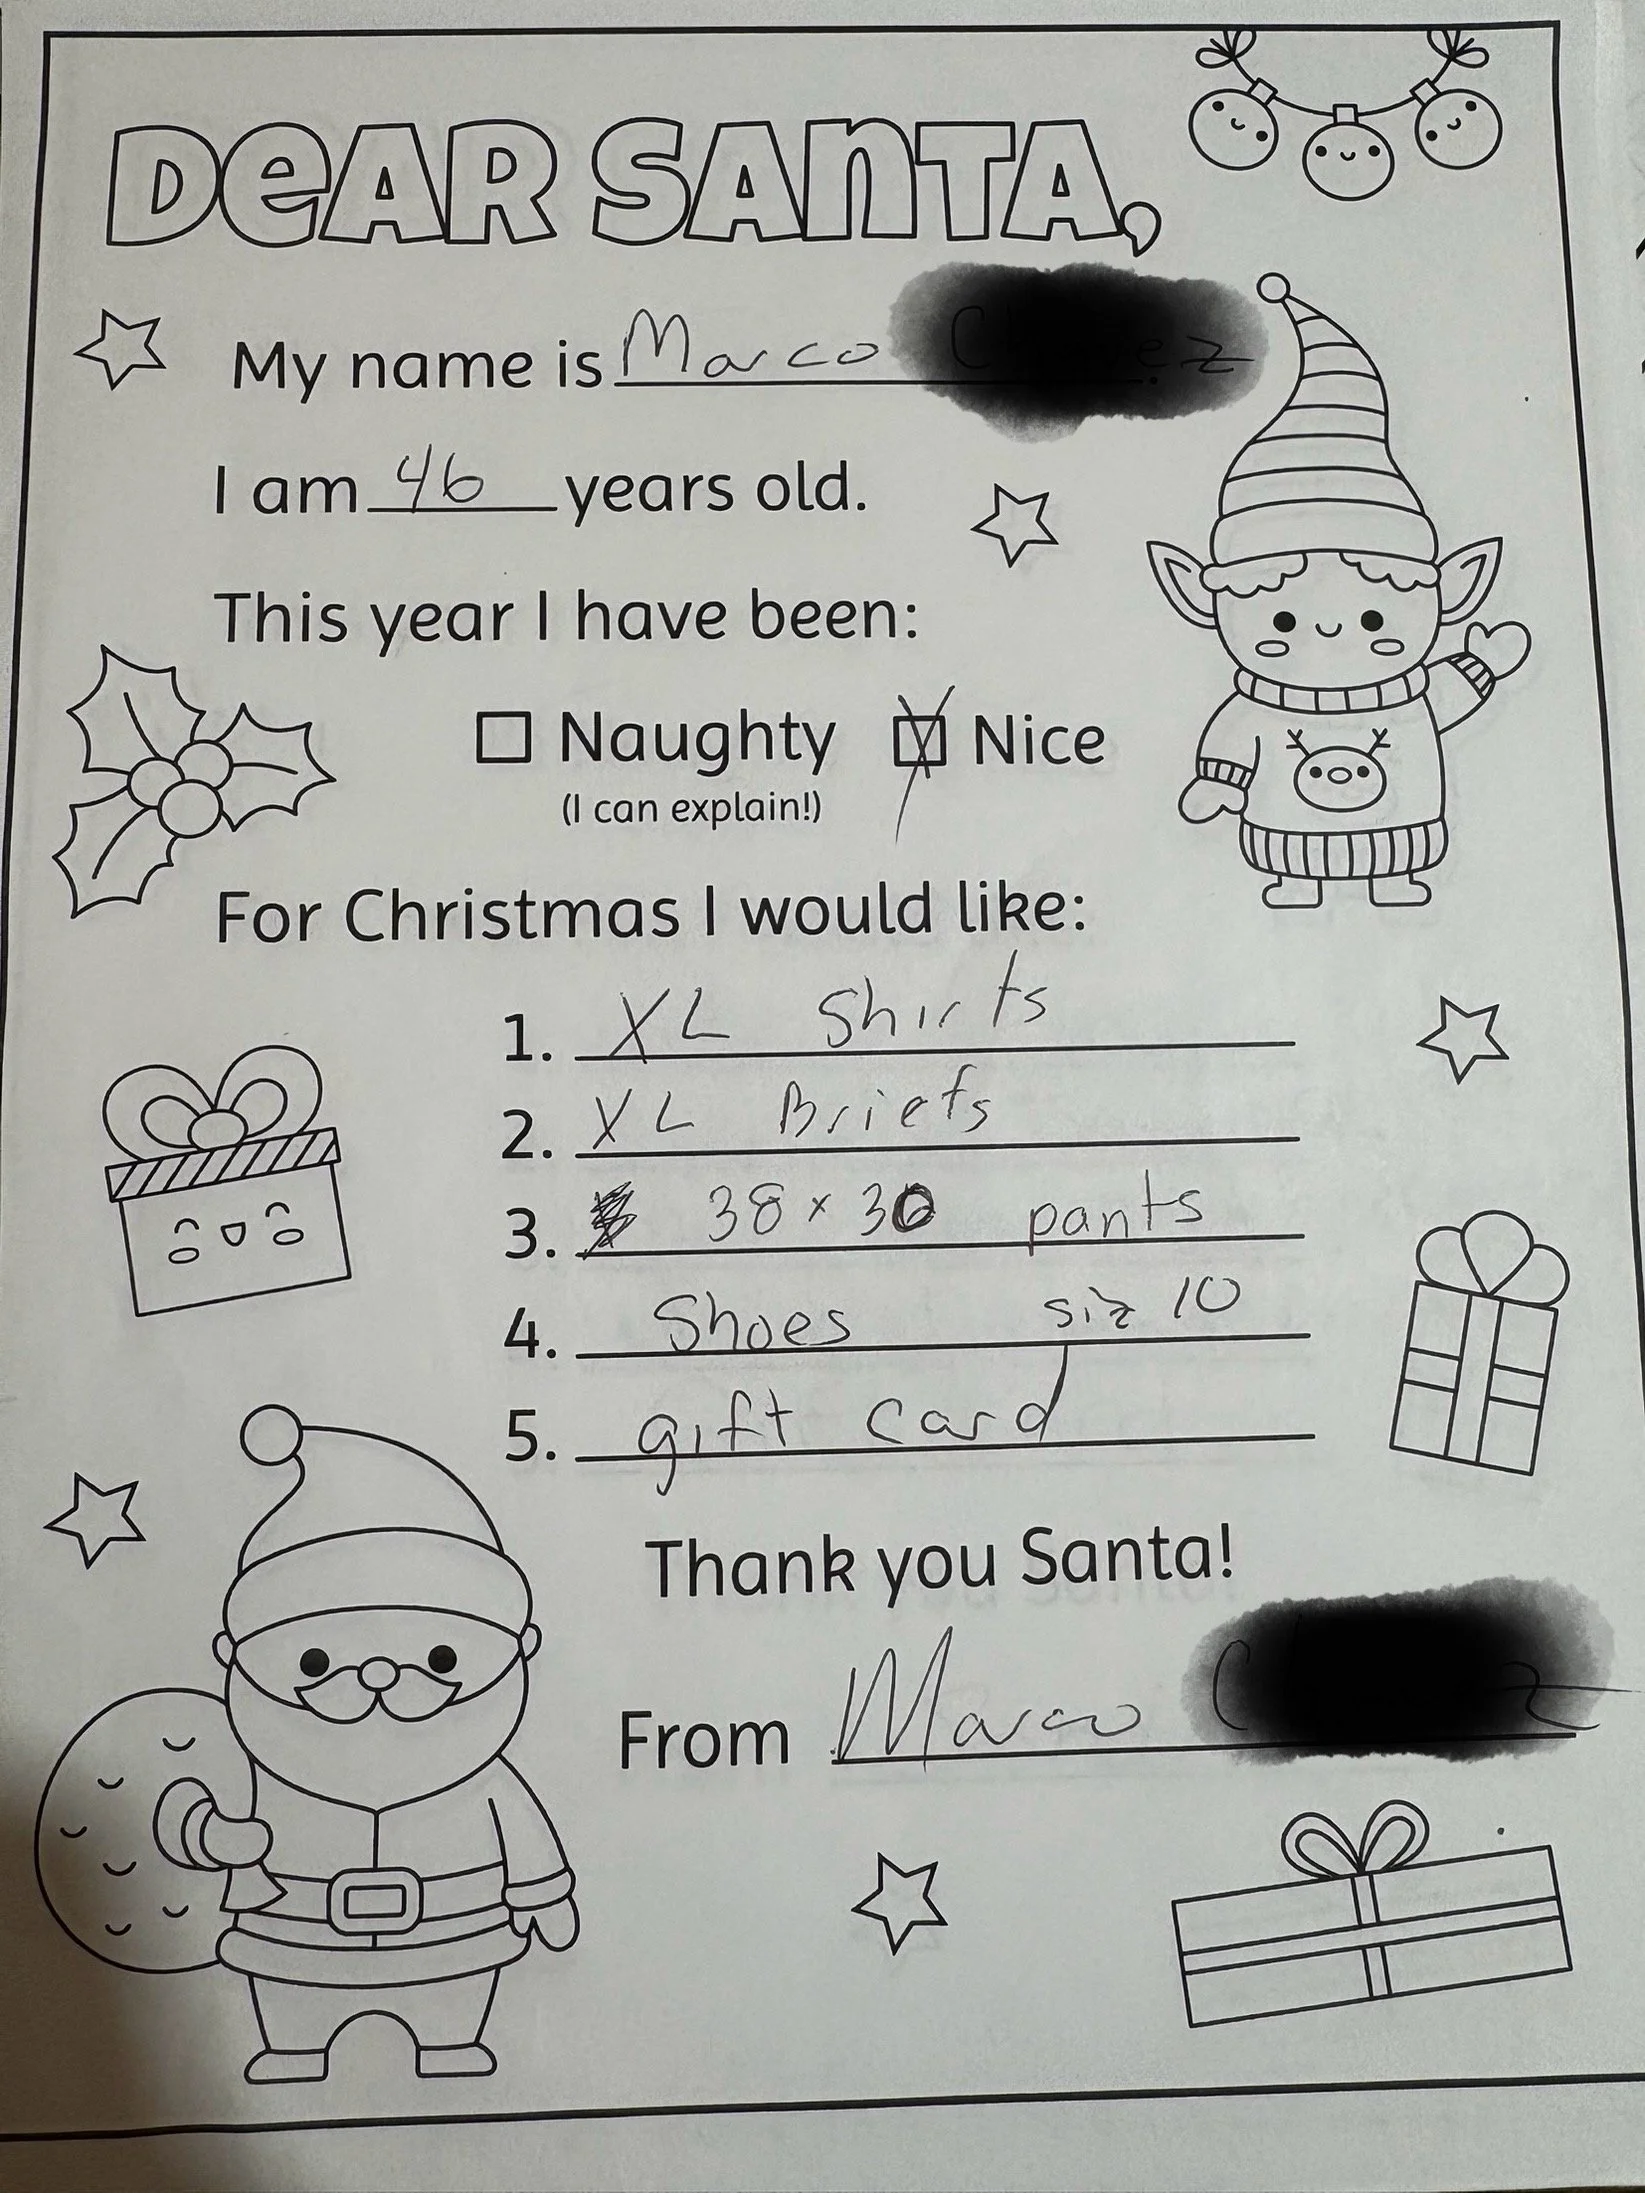 DEAR SANTA,
My name is Marco
I am 46 years old.
This year I have been:
Naughty Nice
(I can explain!)
For Christmas I would like:
1. XL Shirts
2. XL Briefs
3. 38 x 30 pants
4. Shoes siz 10
5. gift card
Thank you Santa!
From Marco